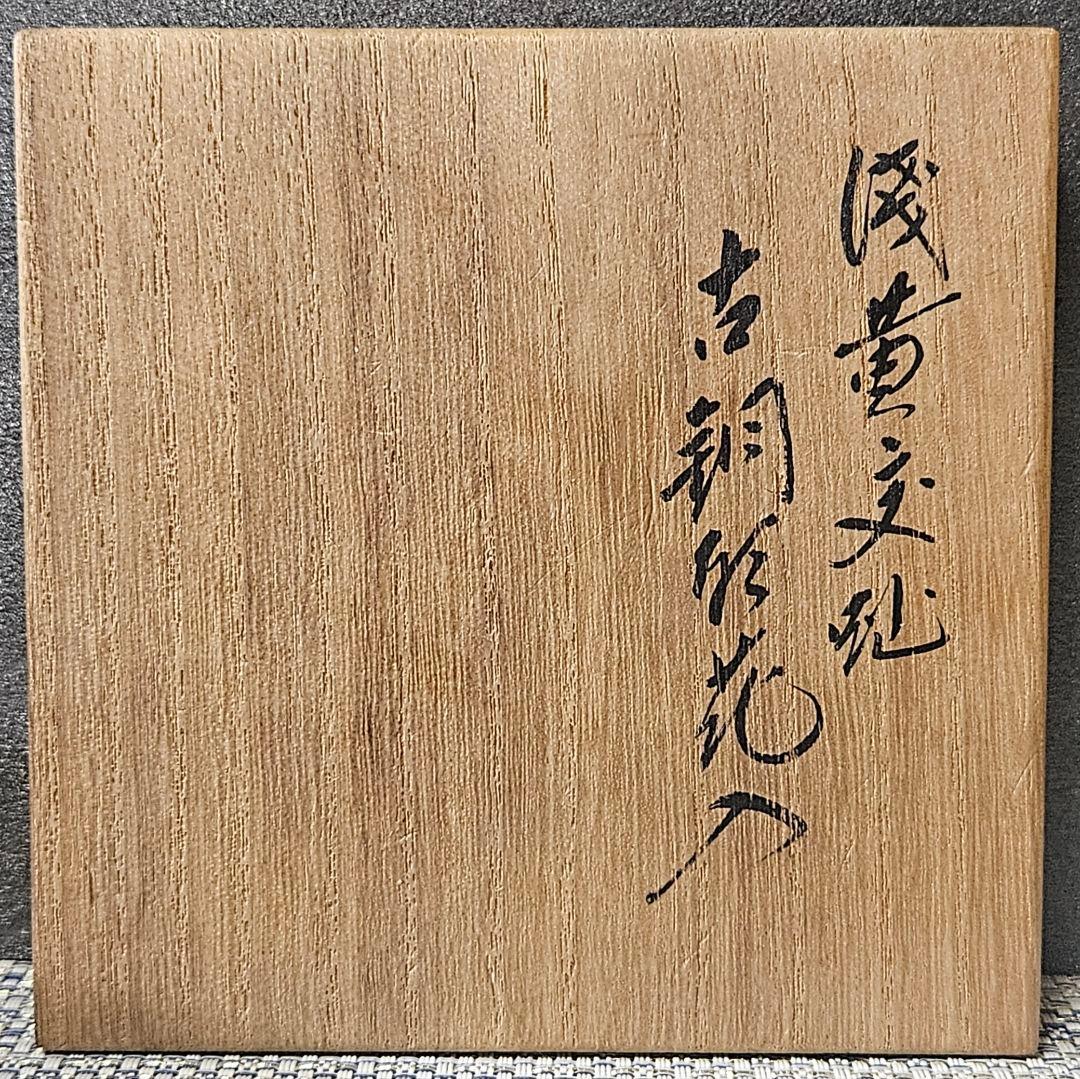 浅黄交趾
古銅形花入